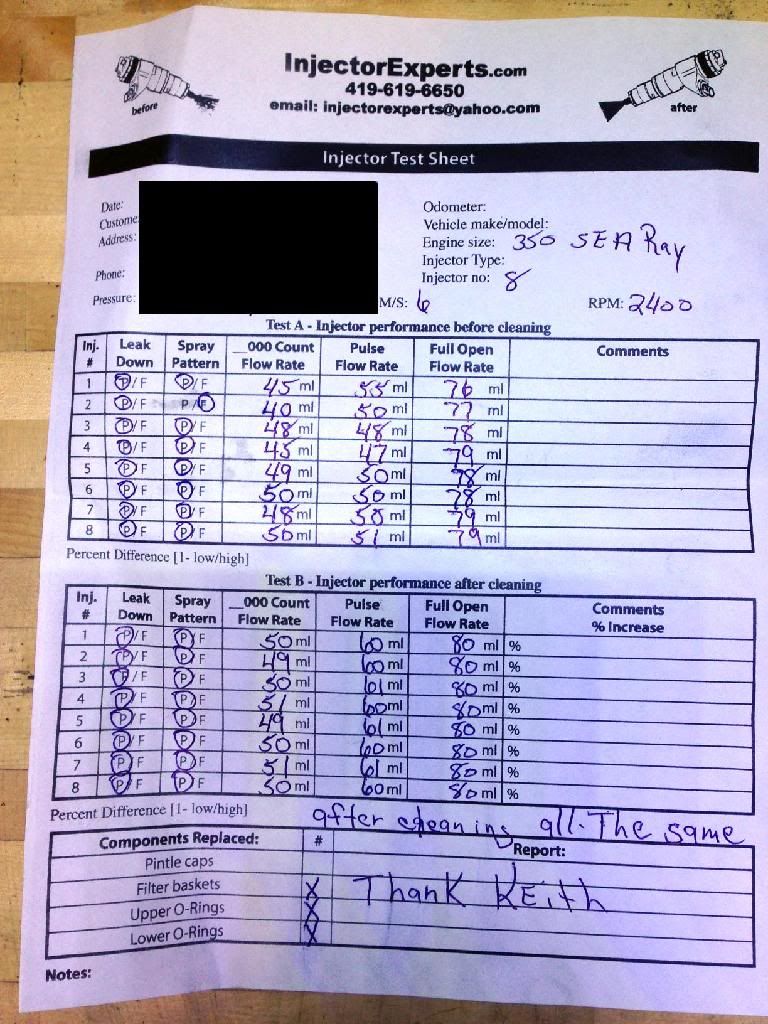 InjectorExperts.com
419-619-6650
email: injectorexperts@yahoo.com
before
after
Injector Test Sheet
Date:
Custome
Address:
Phone:
Pressure:
Odometer:
Vehicle make/model:
Engine size: 350 SEA Ray
Injector Type:
Injector no: 8
M/S: 6 RPM: 2400
Test A - Injector performance before cleaning
Inj. # Leak Down Spray Pattern __000 Count Flow Rate Pulse Flow Rate Full Open Flow Rate Comments
1 P/F P/F 45 ml 55 ml 76 ml
2 P/F P/F 40 ml 50 ml 77 ml
3 P/F P/F 48 ml 48 ml 78 ml
4 P/F P/F 45 ml 47 ml 79 ml
5 P/F P/F 49 ml 50 ml 78 ml
6 P/F P/F 50 ml 50 ml 78 ml
7 P/F P/F 48 ml 50 ml 79 ml
8 P/F P/F 50 ml 51 ml 79 ml
Percent Difference [1- low/high]
Test B - Injector performance after cleaning
Inj. # Leak Down Spray Pattern __000 Count Flow Rate Pulse Flow Rate Full Open Flow Rate Comments % Increase
1 P/F P/F 50 ml 60 ml 80 ml %
2 P/F P/F 49 ml 60 ml 80 ml %
3 P/F P/F 50 ml 61 ml 80 ml %
4 P/F P/F 51 ml 60 ml 80 ml %
5 P/F P/F 49 ml 61 ml 80 ml %
6 P/F P/F 50 ml 60 ml 80 ml %
7 P/F P/F 51 ml 61 ml 80 ml %
8 P/F P/F 50 ml 60 ml 80 ml %
Percent Difference [1- low/high] after cleaning all. The same
Components Replaced: # Report:
Pintle caps
Filter baskets X Thank Keith
Upper O-Rings X
Lower O-Rings X
Notes: